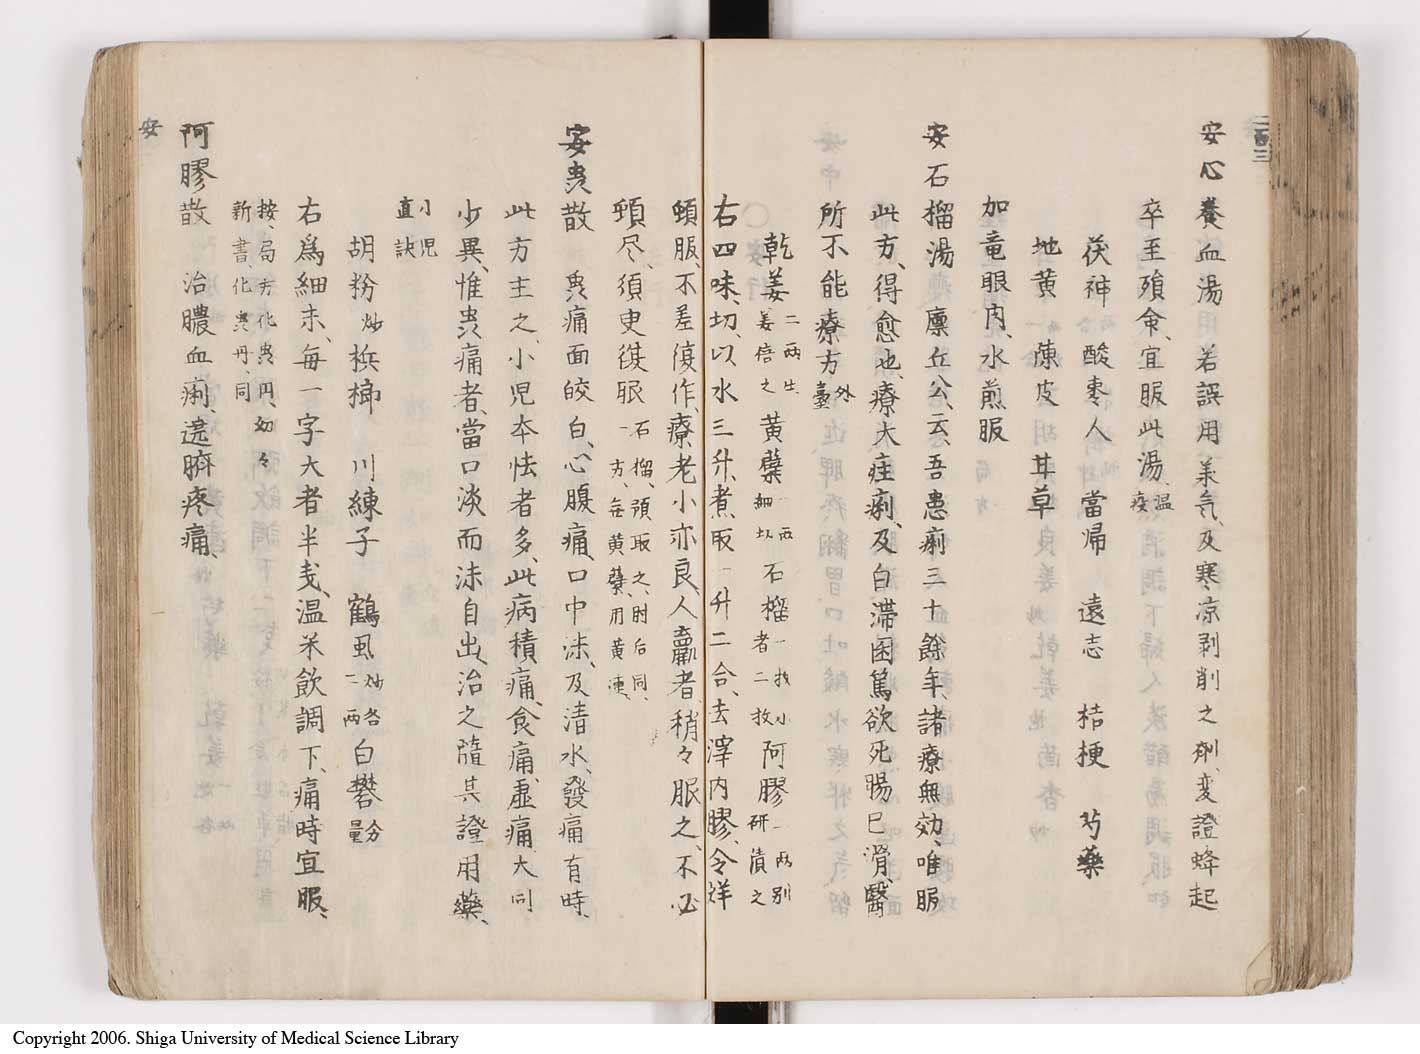 二百三
安心養血湯 若誤用業気、及寒凉剥削之剤、変證蜂起
卒至殞命、宜服此湯、温疫
茯神 酸棗人 當帰 遠志 桔梗 芍藥
地黄 陳皮 甘草
加竜眼肉、水煎服
安石榴湯 廩丘公云、吾患痢三十餘年、諸療無効、唯服
此方、得愈也、療大疰痢、及白滞困篤欲死腸已滑、醫
所不能療方 外臺
乾姜 二両生姜倍之 黄蘗 一両細切 石榴 一枚小者二枚 阿膠 一両別研漬之
右四味、切、以水三升、煮取一升二合、去滓内膠、令烊
頓服、不差復作、療老小亦良、人羸者、稍々服之、不必
頓尽、須臾復服 石榴、須取之、肘后同、一方、無黄蘗、用黄連、
安䖝散 䖝痛面皎白、心腹痛、口中沫、及清水、發痛有時、
此方主之、小児本怯者多、此病積痛、食痛、虚痛、大同
少異、惟䖝痛者、當口淡而沫自出、治之隨其證用藥、
小児直訣
胡粉 炒 梹榔 川練子 鶴虱 炒各二両 白礬 分量
右為細末、毎一字大者半戔、温米飲調下、痛時宜服、
按、局方化䖝円、幼々新書、化䖝丹、同
阿膠散 治膿血痢、遶臍疼痛、
安
Copyright 2006. Shiga University of Medical Science Library